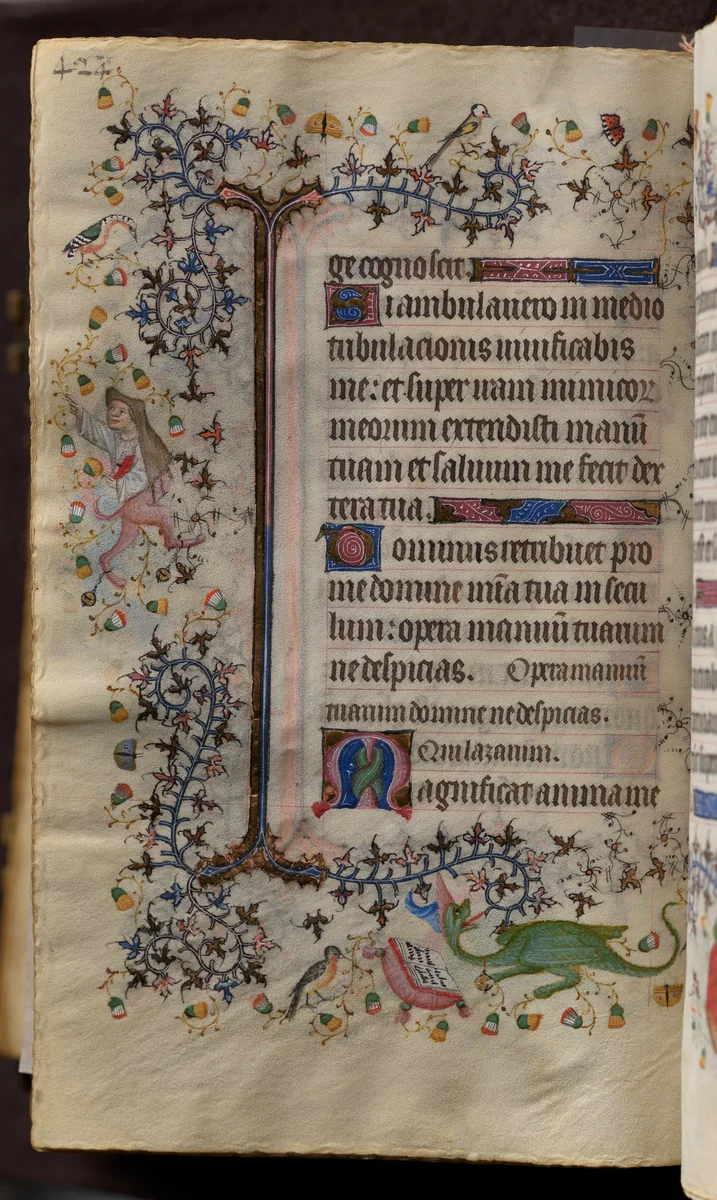 424
ge cognoscit.
Si ambulavero in medio
tribulacionis vivificabis
me: et super iram inimicor
meorum extendisti manū
tuam et salvum me fecit dex
tera tua.
Dominus retribuet pro
me domine mīa tua in secu
lum: opera manuū tuarum
ne despicias. Opera manuū
tuarum domine ne despicias.
Qui lazarum.
Magnificat anima me